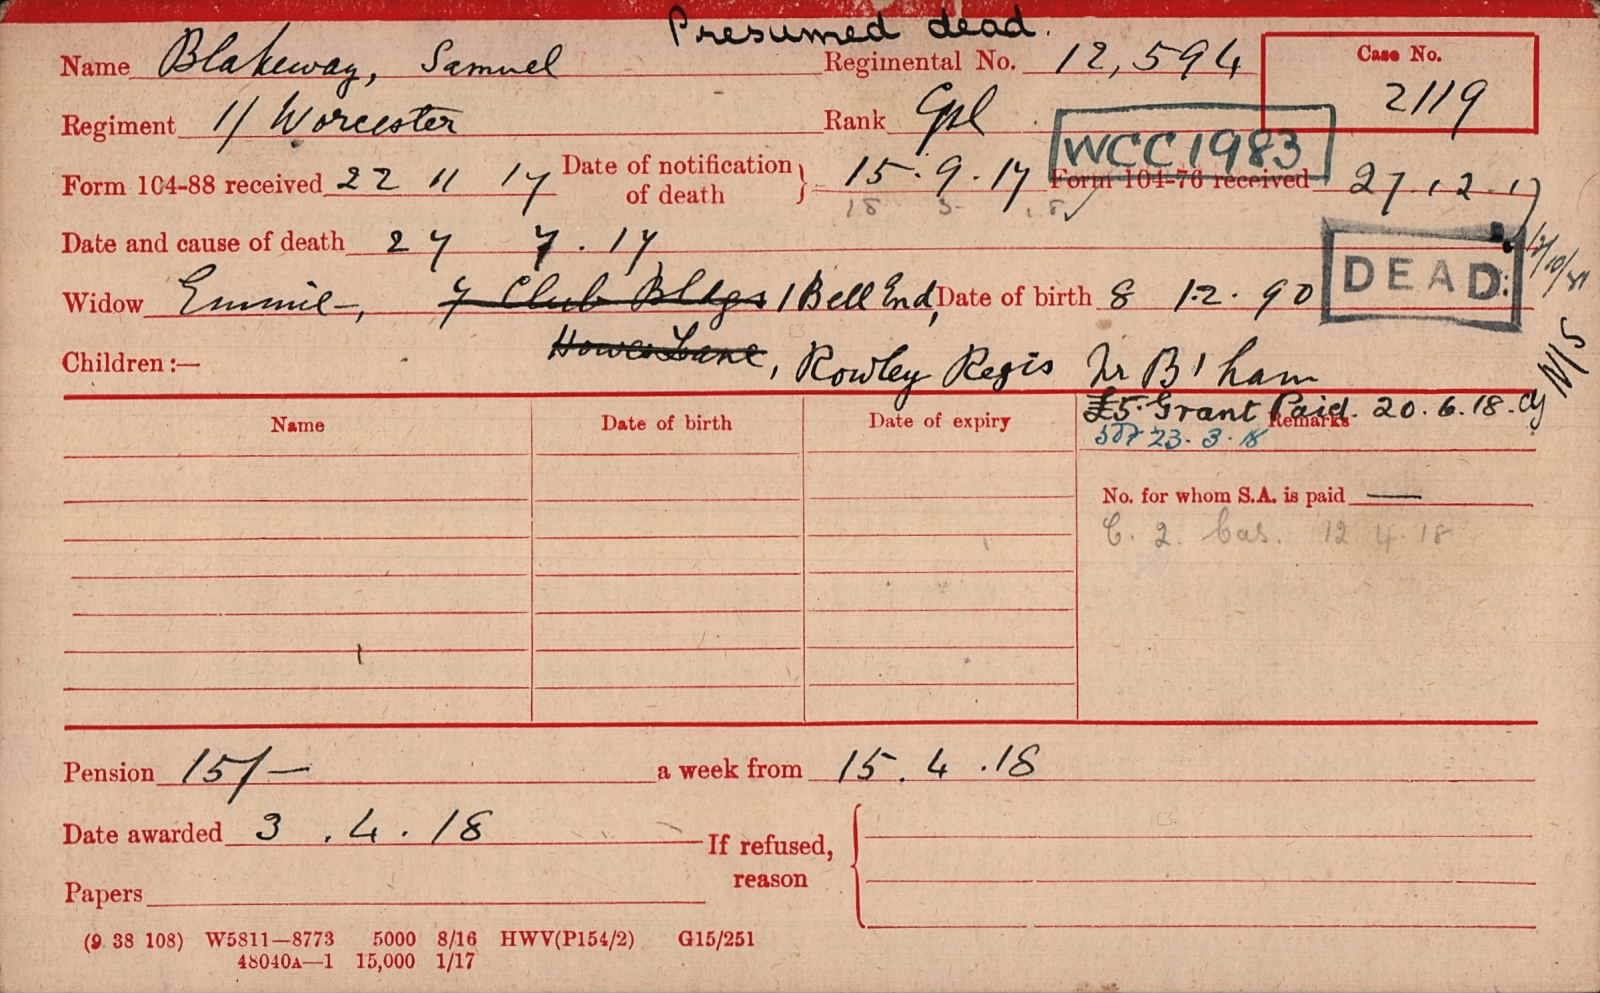 Presumed dead.
Name Blakeway, Samuel Regimental No. 12,594 Case No. 2119
Regiment 1/ Worcester Rank Cpl WCC 1983
Form 104-88 received 22 11 17 Date of notification of death } 15.9.17 Form 104-76 received 27.12.17
18 3 18
Date and cause of death 27 7.17
DEAD
Widow Emmie, 7 Club Bldgs 1 Bell End, Date of birth 8 12.90
Children:— Howes Lane, Rowley Regis Nr B'ham N/S
£5 Grant Paid. 20.6.18.
Name Date of birth Date of expiry Remarks
23.3.18
No. for whom S.A. is paid —
C. 2. Cas. 12 4.18
Pension 15/— a week from 15.4.18
Date awarded 3.4.18 If refused, reason
Papers
(9 38 108) W5811—8773 5000 8/16 HWV(P154/2) G15/251
48040A—1 15,000 1/17